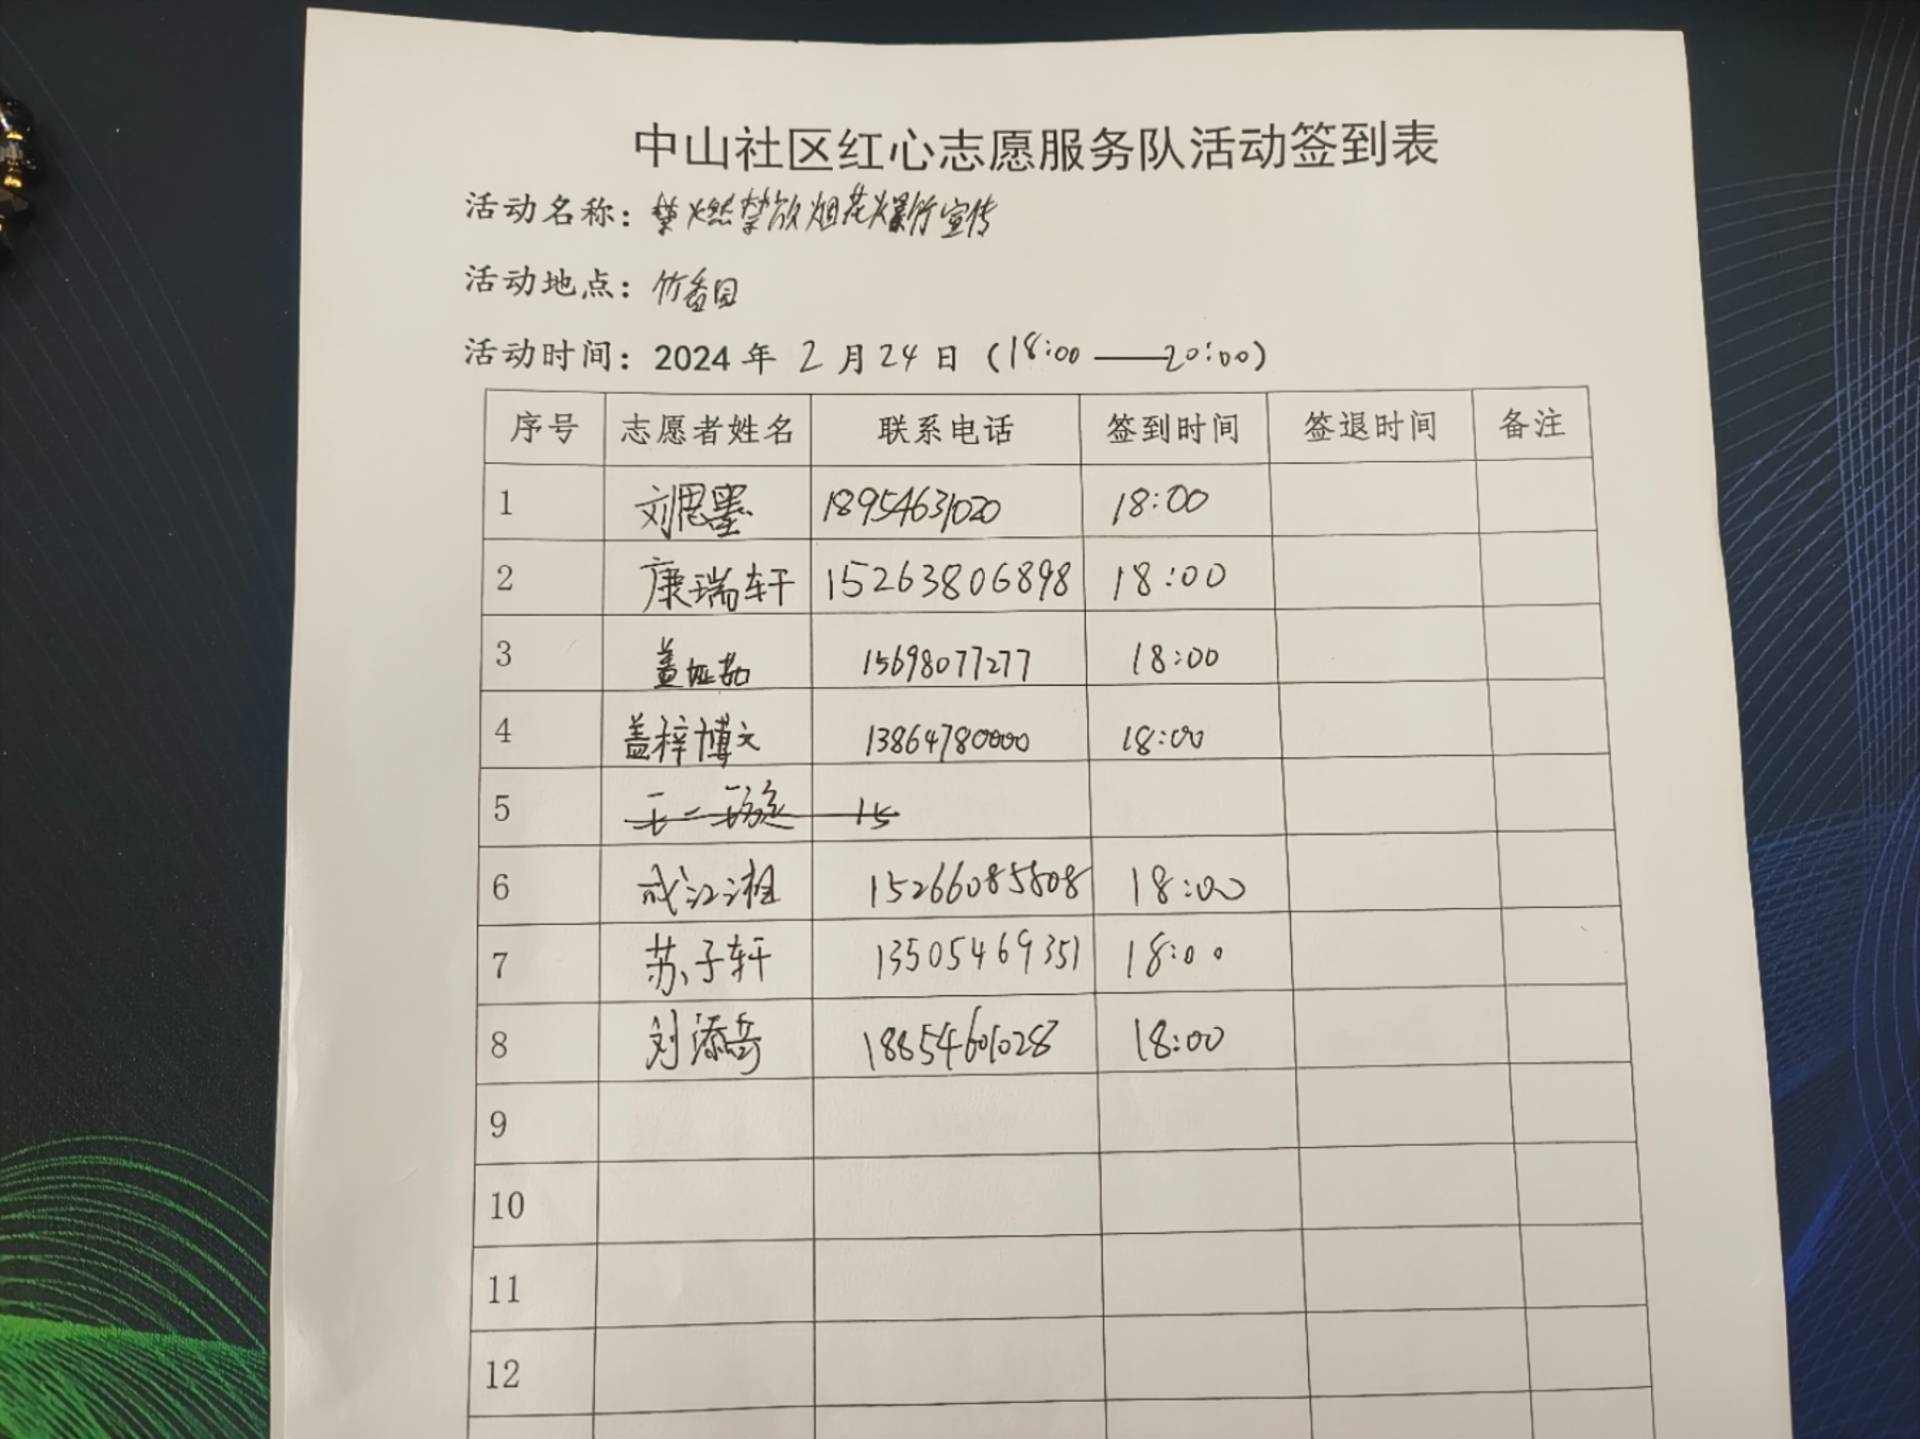 中山社区红心志愿服务队活动签到表
活动名称：禁燃禁放烟花爆竹宣传
活动地点：竹香园
活动时间：2024 年 2 月 24 日（18:00 —— 20:00）
序号 志愿者姓名 联系电话 签到时间 签退时间 备注
1 刘思墨 18954631020 18:00
2 康瑞轩 15263806898 18:00
3 盖 15698077277 18:00
4 盖梓博文 13864780000 18:00
5 王一 15
6 成江湘 15266085808 18:00
7 苏子轩 13505469351 18:00
8 刘添奇 18854601028 18:00
9
10
11
12